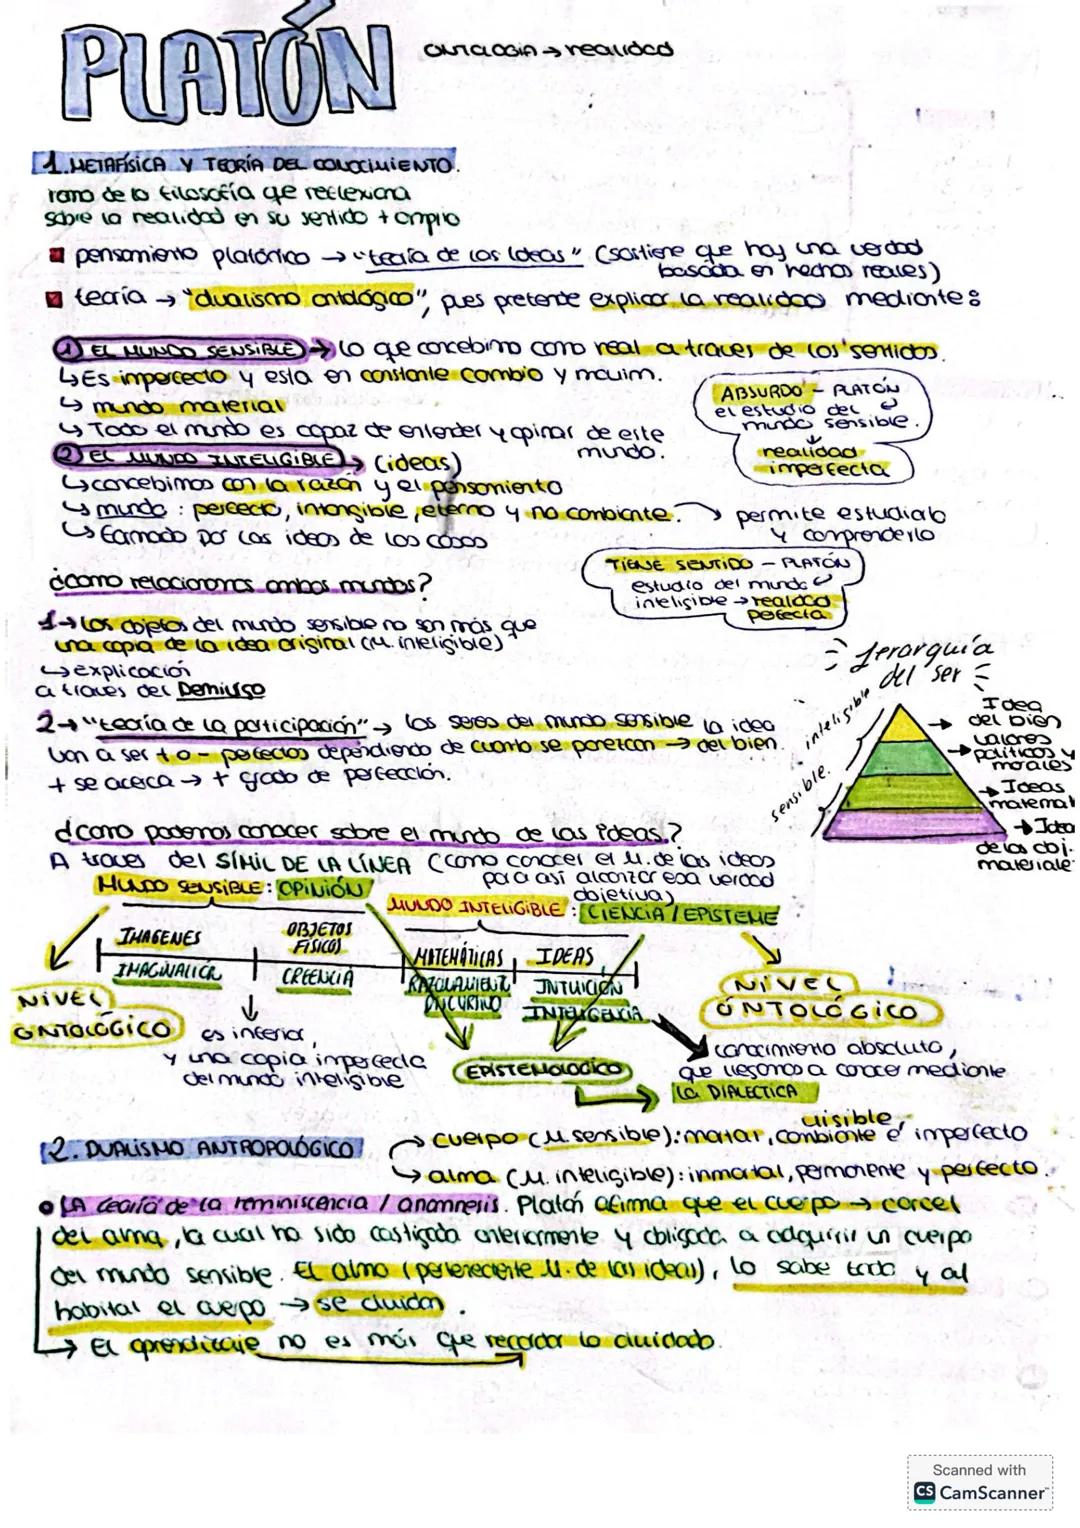 PLATÓN
ontología → realidad
1. METAFÍSICA Y TEORÍA DEL CONOCIMIENTO.
rama de la filosofía que reflexiona
sobre la realidad en su sentido + amplio
pensamiento platónico → "teoría de las Ideas" (sostiene que hay una verdad
basada en hechos reales)
teoría → "dualismo ontológico", pues pretende explicar la realidad mediante:
① EL MUNDO SENSIBLE → lo que concebimo como real a traves de los sentidos.
↳ Es imperfecto y esta en constante cambio y movim.
↳ mundo material
↳ Todo el mundo es capaz de entender y opinar de este
mundo.
ABSURDO - PLATÓN
el estudio del
mundo sensible.
↓
realidad
imperfecta
② EL MUNDO INTELIGIBLE → (ideas)
↳ concebimos con la razón y el pensamiento
↳ mundo: perfecto, intangible, eterno y no cambiante. → permite estudiarlo
y comprenderlo
↳ Formado por las ideas de las cosas
TIENE SENTIDO - PLATÓN
estudio del mundo
inteligible → realidad
perfecta
¿como relacionamos ambos mundos?
1→ Los objetos del mundo sensible no son más que
una copia de la idea original (M. inteligible)
↳ explicación
a traves del Demiurgo
2→ "teoría de la participación" → los seres del mundo sensible la idea
van a ser + o - perfectos dependiendo de cuanto se parezcan → del bien.
+ se acerca → + grado de perfección.
Jerarquía
del ser
inteligible
sensible.
→ Idea
del bien
→ valores
políticos y
morales
→ Ideas
matemat
→ Idea
de las obj.
materiale
¿como podemos conocer sobre el mundo de las ideas.?
A traves del SÍMIL DE LA LÍNEA (como conocer el M. de las ideas
para así alcanzar esa verdad
objetiva)
MUNDO SENSIBLE: OPINIÓN
MUNDO INTELIGIBLE: CIENCIA / EPISTEME
IMAGENES
OBJETOS
FÍSICOS
MATEMÁTICAS
IDEAS
IMAGINACIÓN
CREENCIA
RAZONAMIENT
DISCURSIVO
INTUICIÓN
INTELIGENCIA
NIVEL
ONTOLÓGICO
NIVEL
ONTOLÓGICO
es inferior,
y una copia imperfecta
del mundo inteligible
EPISTEMOLOGICO
conocimiento absoluto,
que llegamos a conocer mediante
la DIALECTICA
2. DUALISMO ANTROPOLÓGICO
visible,
→ cuerpo (M. sensible): mortal, cambiante e imperfecto
→ alma (M. inteligible): inmortal, permanente y perfecto.
• LA teoría de la reminiscencia / anamnesis. Platón afirma que el cuerpo → carcel
del alma, la cual ha sido castigada anteriormente y obligada a adquirir un cuerpo
del mundo sensible. El alma (perteneciente M. de las ideas), lo sabe todo y al
habitar el cuerpo → se olvidan.
→ El aprendizaje no es más que recordar lo olvidado.
Scanned with
CS CamScanner